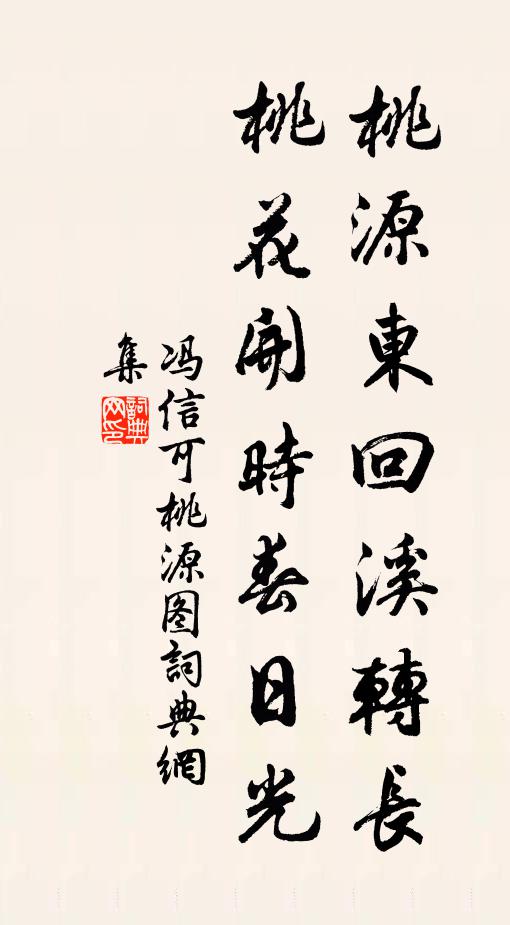 桃源東回溪轉長
桃花開時春日光
冯信可桃源图詞典網
集
詞典网印